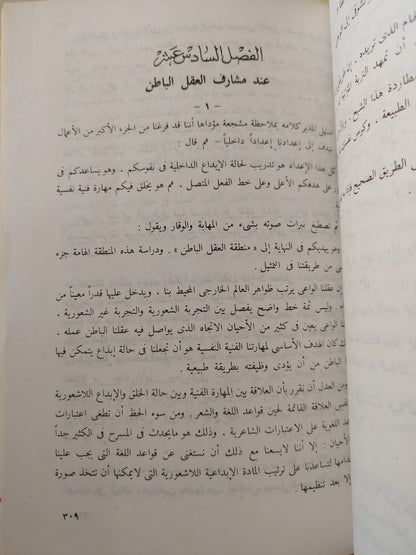 الفصل السادس عشر
عند مشارف العقل الباطن
- ١ -
استهل المدير كلامه بملاحظة مشجعة مؤداها أننا قد فرغنا من الجزء الأكبر من الأعمال
تهدف إلى إعدادنا إعداداً داخلياً - ثم قال :
كل هذا الإعداد هو تدريب لحالة الإبداع الداخلية فى نفوسكم . وهو يساعدكم فى
على هدفكم الأعلى وعلى خط الفعل المتصل . ثم هو يخلق فيكم مهارة فنية نفسية
ثم تصطبغ نبرات صوته بشىء من المهابة والوقار ويقول :
وهو يهديكم فى النهاية إلى « منطقة العقل الباطن » . ودراسة هذه المنطقة الهامة جزء
من طريقتنا فى التمثيل .
إن عقلنا الواعى يرتب ظواهر العالم الخارجى المحيط بنا ، ويدخل عليها قدراً معيناً من
. وليس ثمة خط واضح يفصل بين التجربة الشعورية والتجربة غير الشعورية .
الواعى يعين فى كثير من الأحيان الاتجاه الذى يواصل فيه عقلنا الباطن عمله .
كان الهدف الأساسى لمهارتنا الفنية النفسية هو أن تجعلنا فى حالة إبداع يتمكن فيها
الباطن من أن يؤدى وظيفته بطريقة طبيعية .
من العدل أن نقرر بأن العلاقة بين المهارة الفنية وبين حالة الخلق والإبداع اللاشعورية
نفس العلاقة القائمة بين قواعد اللغة والشعر . ومن سوء الحظ أن تطغى اعتبارات
اللغوية على الاعتبارات الشاعرية . وذلك هو مايحدث فى المسرح فى الكثير جداً
الأحيان : إلا أننا لايسعنا مع ذلك أن نستغنى عن قواعد اللغة التى يجب علينا
لتساعدنا على ترتيب المادة الإبداعية اللاشعورية التى لايمكنها أن تتخذ صورة
إلا بعد تنظيمها
٣٠٩